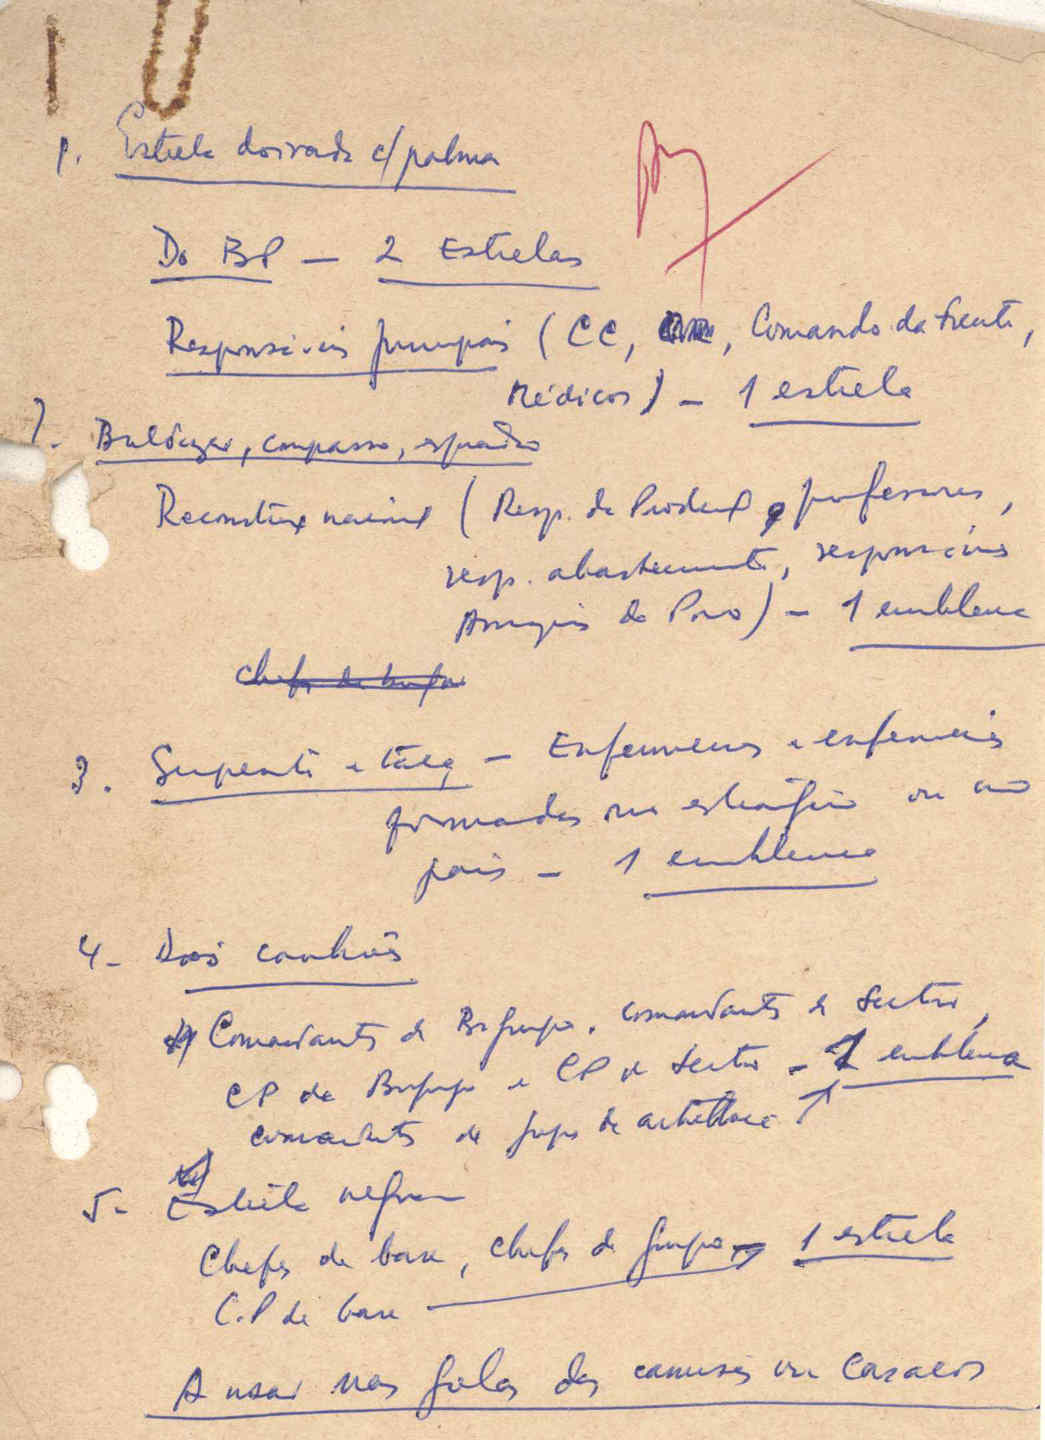 1. Estrela doirada c/ palma
Do BP — 2 Estrelas
Responsáveis principais (CC, , Comando da Frente,
Médicos) — 1 estrela
2. Buldozer, compasso, esquadro
Reconstruç nacional (Resp. da Produç, professores,
resp. abastecimento, responsáveis
Armazéns do Povo) — 1 emblema
Chefes de
3. Serpente e taça — Enfermeiros e enfermeiras
formados no estrangeiro ou no
país — 1 emblema
4 - Dois canhões
Comandante de Bigrupo, comandante de Sector,
CP de Bigrupo e CP de Sector - 1 emblema
comandante de grupo de artilharia
5 - Estrela negra
Chefes de base, chefes de grupo — 1 estrela
C.P de base
A usar nas golas das camisas ou casacos